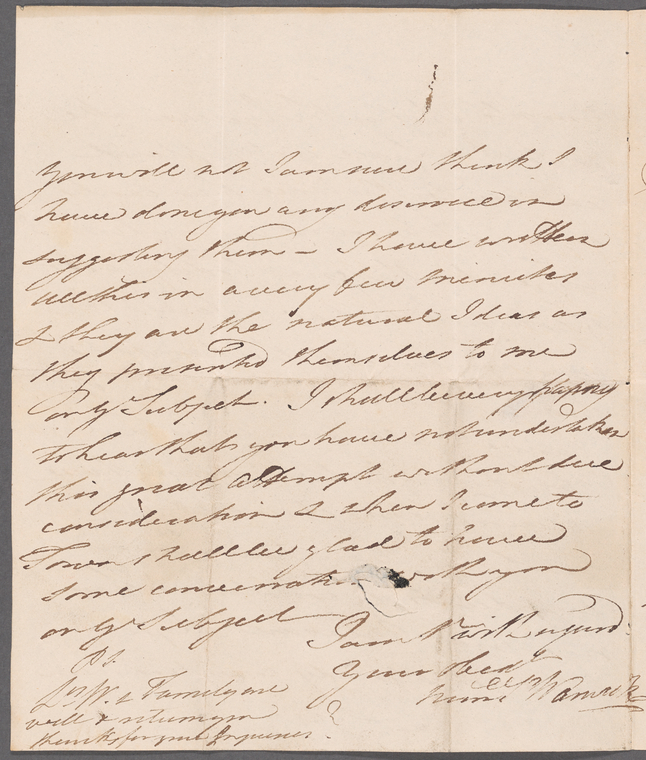 you will not I am sure think I
have done you any disservice in
suggesting them – I have written
all this in a very few Minutes
& they are the natural Ideas as
they presented themselves to me
on yr Subject. I shall be very happy
to hear that you have not undertaken
this great attempt without due
consideration & when I come to
Town shall be glad to have
some conversation with you
on yr Subject
I am Sr with regard
your Obedt
Servt Warwick
P.S.
Ly W. & Family are
well & return you
thanks for your Inquiries.